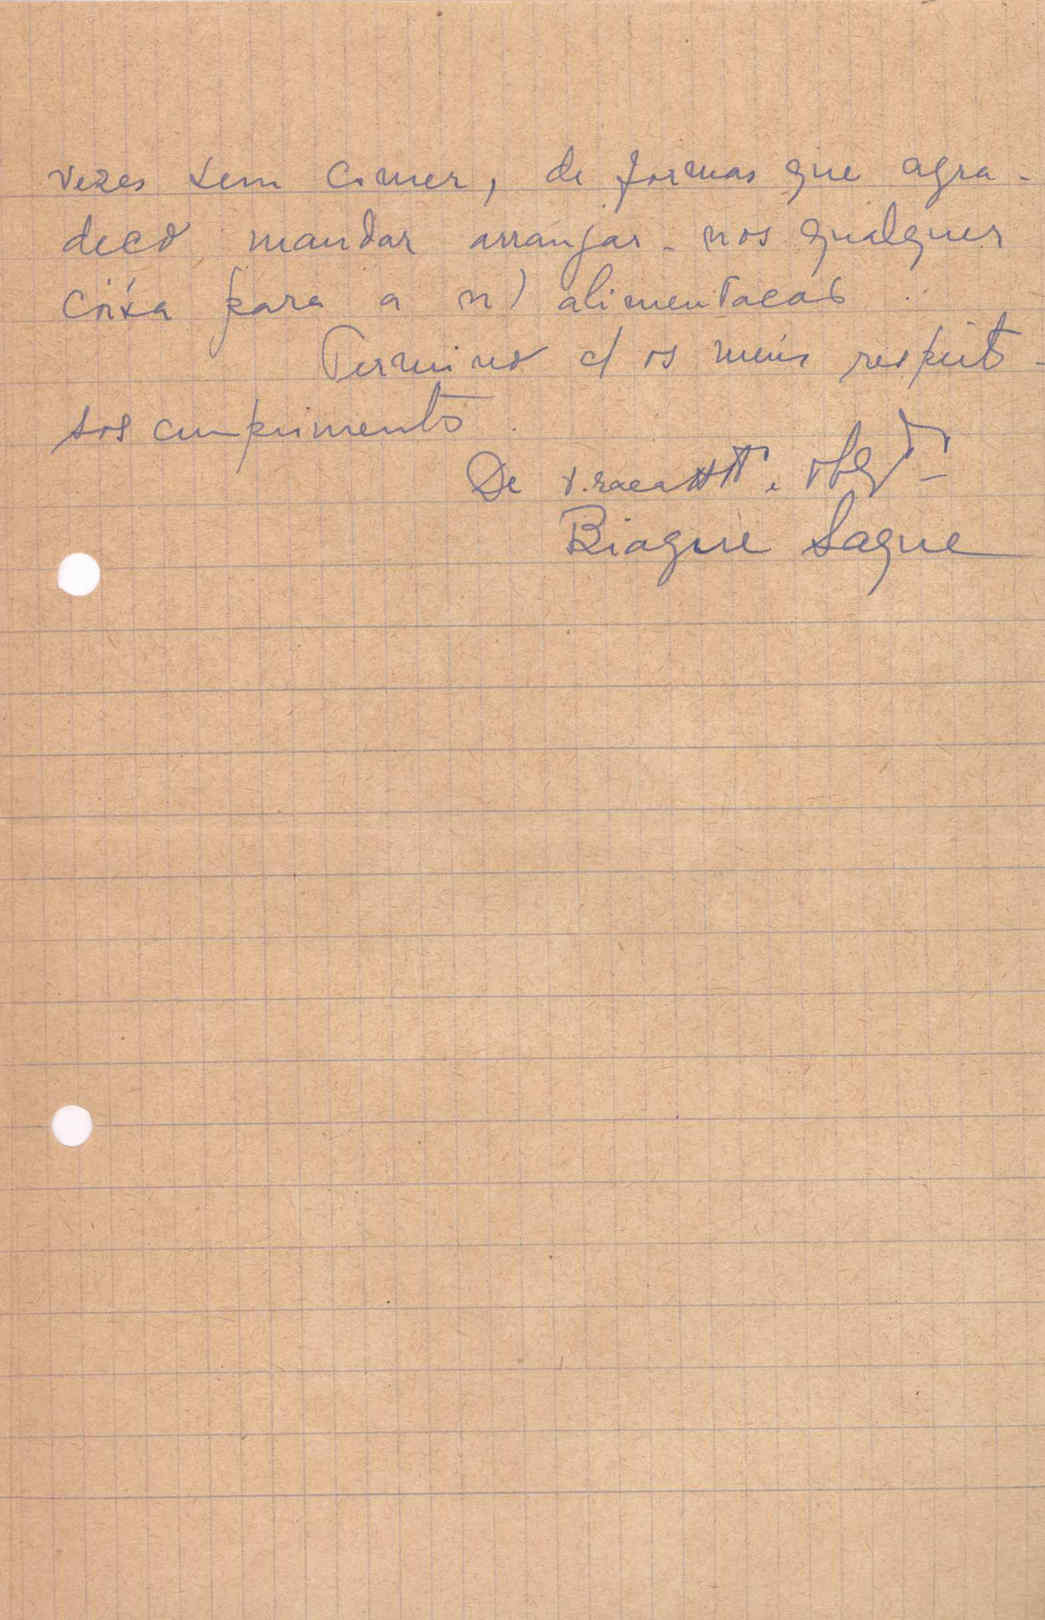 vezes sem comer, de formas que agra-
deco mandar arranjar-nos qualquer
coisa para a n) alimentacao.
Termino c/ os meus respeito-
sos cumprimento.
De V. e obgd.
Biague Sague